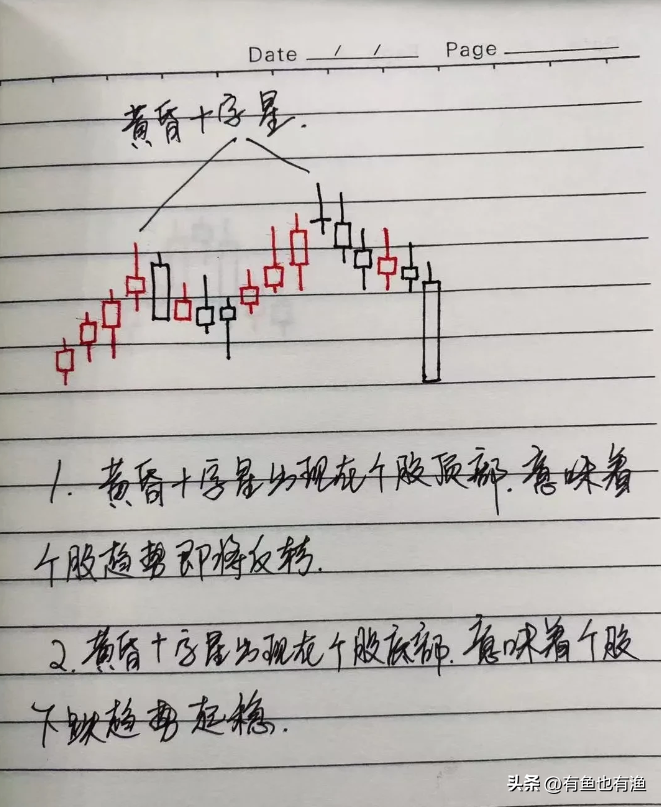 Date / / Page
黄昏十字星.
1. 黄昏十字星出现在个股顶部.意味着
个股趋势即将反转.
2.黄昏十字星出现在个股底部.意味着个股
下跌趋势起稳.
头条 @有鱼也有渔